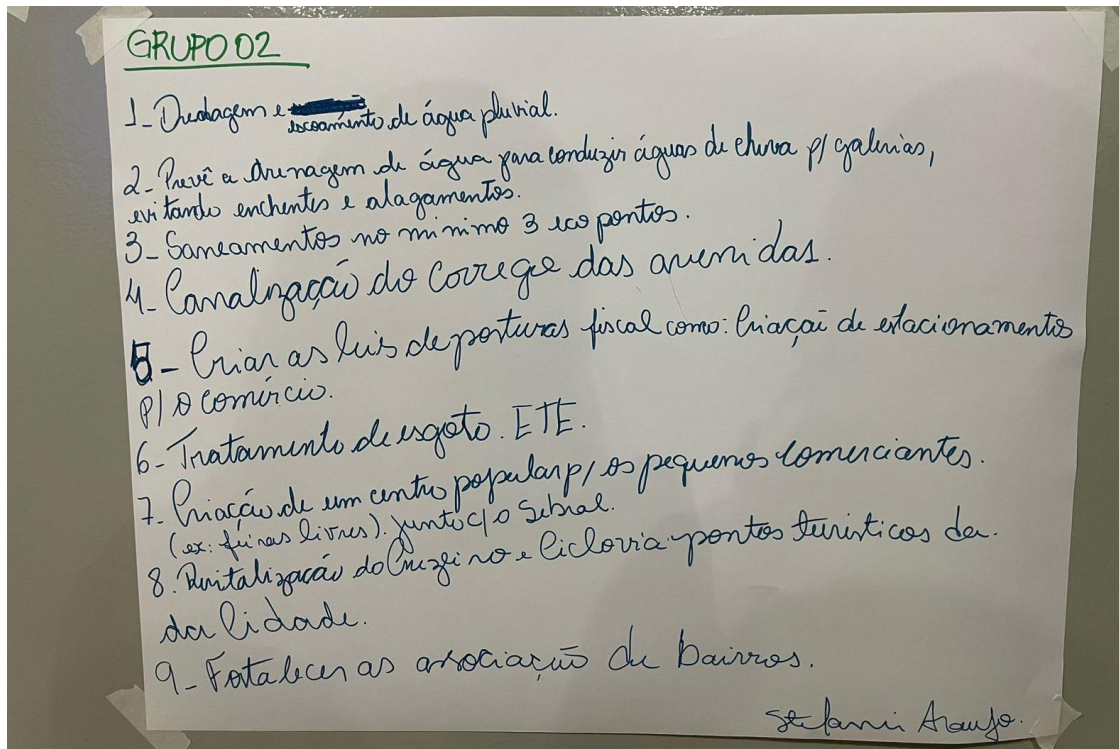 GRUPO 02
1_ Dredagem e escoamento de água pluvial.
2_ Prevê a drenagem de água para conduzir águas de chuva p/ galerias,
evitando enchentes e alagamentos.
3_ Saneamentos no minimo 3 eco pontos.
4_ Canalização do Corrego das avenidas.
5_ Criar as leis de posturas fiscal como: Criação de estacionamentos
p/ o comércio.
6_ Tratamento de esgoto. ETE.
7_ Criação de um centro popular p/ os pequenos comerciantes.
(ex: feiras livres). junto c/ o Sebrai.
8. Revitalização do Cruzeiro e Ciclovia pontos turisticos da.
da Cidade.
9_ Fortalecer as associação de bairros.
Stefanni Araujo.